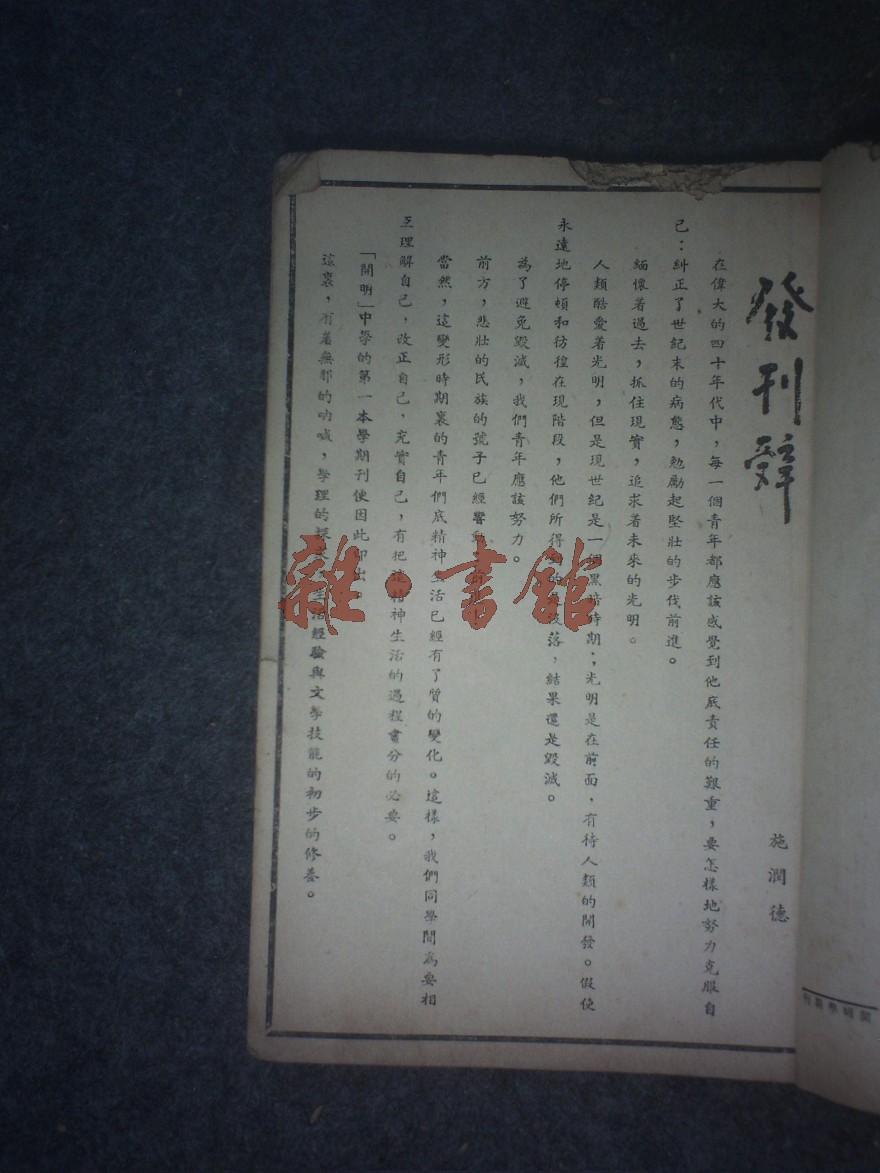 發刊辭
施潤德
在偉大的四十年代中，每一個青年都應該感覺到他底責任的艱重，要怎樣地努力克服自
己：糾正了世紀末的病態，勉勵起堅壯的步伐前進。
緬懷着過去，抓住現實，追求着未來的光明。
人類酷愛着光明，但是現世紀是一個黑暗時期；光明是在前面，有待人類的開發。假使
永遠地停頓和彷徨在現階段，他們所得到的是沒落，結果還是毀滅。
為了避免毀滅，我們青年應該努力。
前方，悲壯的民族的號子已經響動
當然，這變形時期裏的青年們底精神生活已經有了質的變化。這樣，我們同學間為要相
互理解自己，改正自己，充實自己，有把這精神生活的過程書分的必要。
「開明」中學的第一本學期刊便因此印出
這裏，有着無邪的吶喊，學理的探 生活經驗與文學技能的初步的修養。
雜·書館
開明學期刊